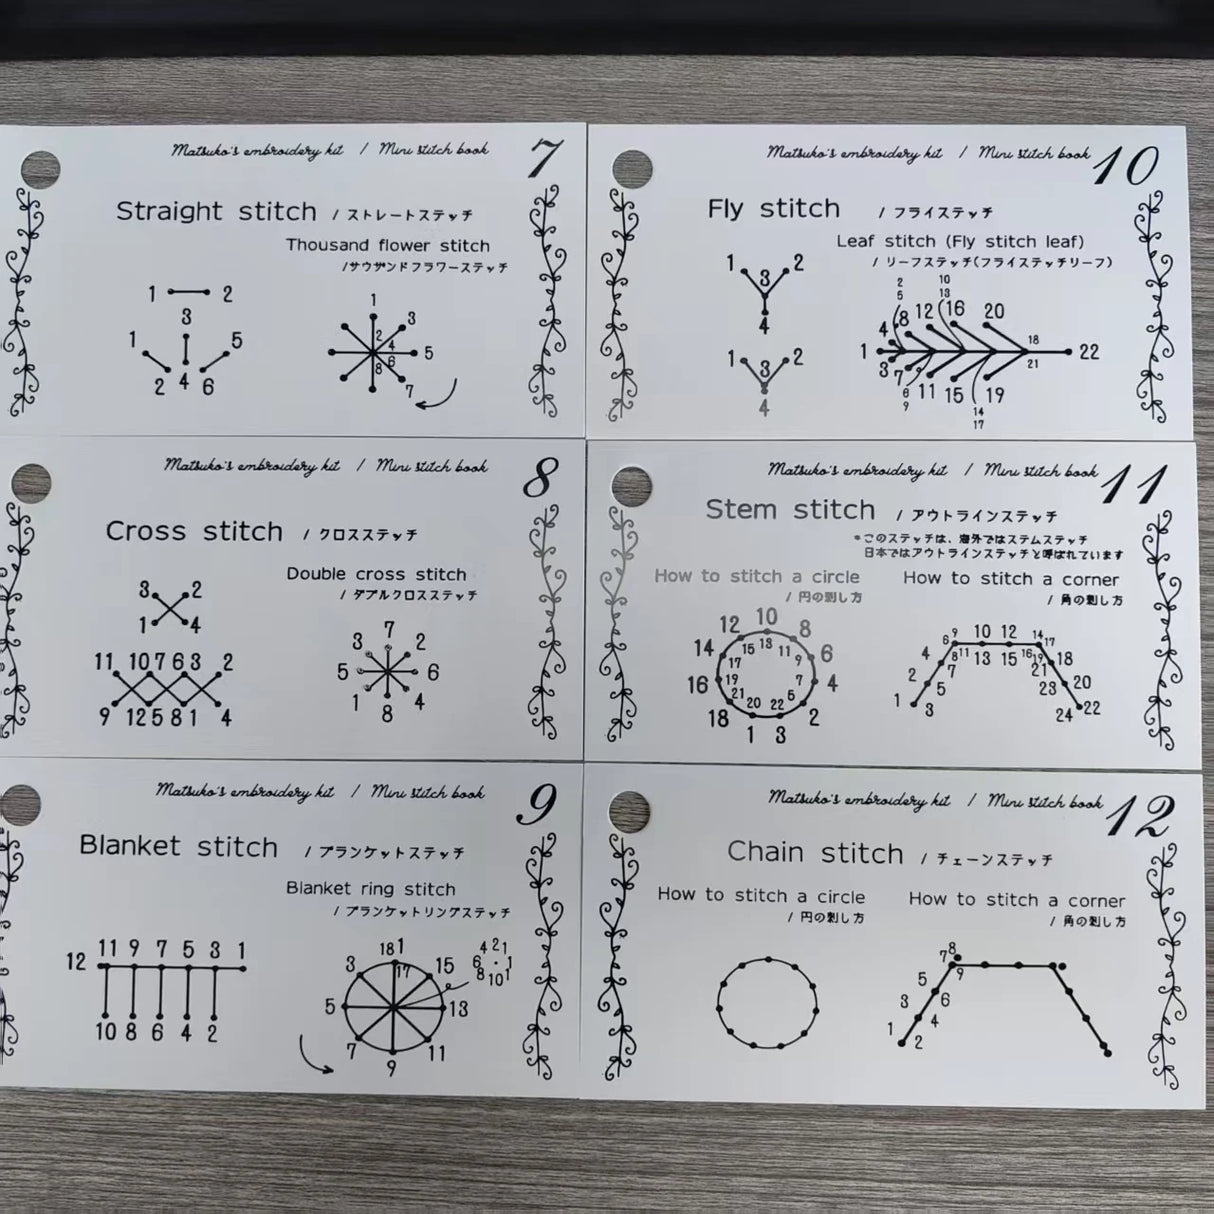 Matsuko's embroidery kit / Mini stitch book 7
Straight stitch / ストレートステッチ
Thousand flower stitch
/サウザンドフラワーステッチ
1 2
3
1 5
2 4 6
1
3
2 4
5
6
8
7
Matsuko's embroidery kit / Mini stitch book 8
Cross stitch / クロスステッチ
Double cross stitch
/ ダブルクロスステッチ
3 2
1 4
11 10 7 6 3 2
9 12 5 8 1 4
7
3 2
5 6
1 4
8
Matsuko's embroidery kit / Mini stitch book 9
Blanket stitch / ブランケットステッチ
Blanket ring stitch
/ ブランケットリングステッチ
11 9 7 5 3 1
12
10 8 6 4 2
18 1
3 17 15
5 13
7 11
9
4 2 1
6 · 1
8 10 1
Matsuko's embroidery kit / Mini stitch book 10
Fly stitch / フライステッチ
Leaf stitch (Fly stitch leaf)
/ リーフステッチ(フライステッチリーフ)
1 2
3
4
1 2
3
4
2 10
5 13
4 8 12 16 20
18
1 22
21
3 7 11 15 19
6 14
9 17
Matsuko's embroidery kit / Mini stitch book 11
Stem stitch / アウトラインステッチ
*このステッチは、海外ではステムステッチ
日本ではアウトラインステッチと呼ばれています
How to stitch a circle
/ 円の刺し方
10
12 8
14 15 13 11 6
17 9
16 19 7 4
21 5
20 22
18 2
1 3
How to stitch a corner
/ 角の刺し方
6 9 10 12 14 17
4 8 11 13 15 16 19 18
2 7 21 20
5 23
1 3 24 22
Matsuko's embroidery kit / Mini stitch book 12
Chain stitch / チェーンステッチ
How to stitch a circle
/ 円の刺し方
How to stitch a corner
/ 角の刺し方
8
7
5 9
3 6
1 4
2